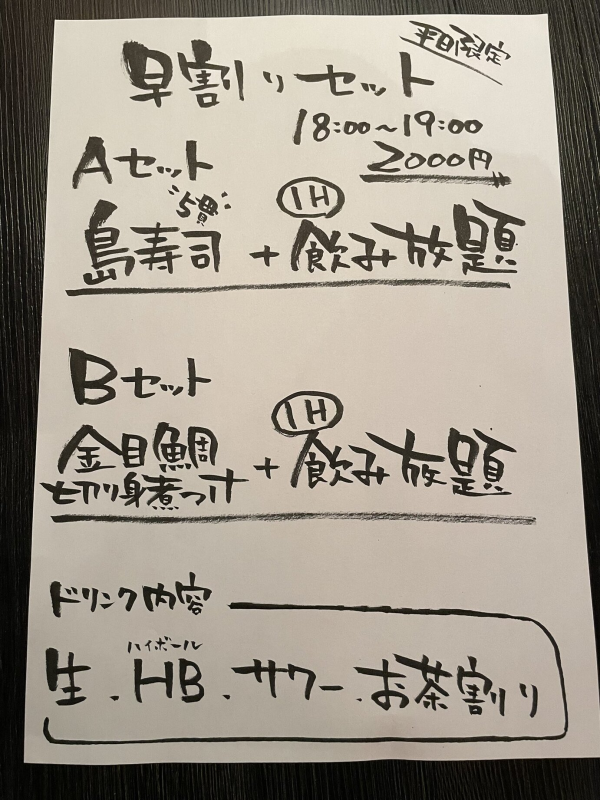 平日限定
早割りセット
18:00~19:00
2000円
Aセット
5貫
1H
島寿司 + 飲み放題
Bセット
1H
金目鯛
切り身煮つけ + 飲み放題
ドリンク内容
ハイボール
生.HB.サワー.お茶割り